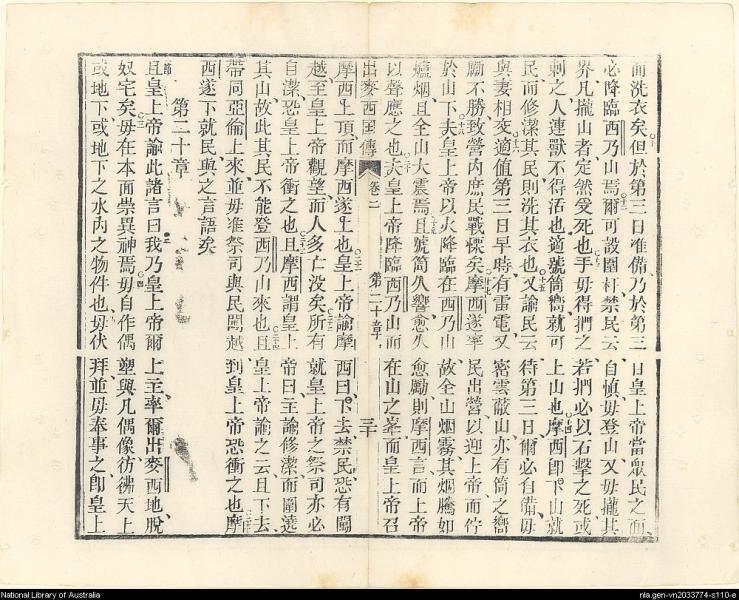 而洗衣矣但於第三日唯備乃於第三日皇上帝當眾民之而
必降臨西乃山焉爾可設圍杆禁民云自慎毋登山又毋攏其
界凡攏山者定然受死也手毋得捫之若捫必以石擊之死或
刺之人連獸不得活也適號筒嚮就可上山也摩西卽下山就
民而修潔其民則洗其衣也又諭民云待第三日爾必自備毋
與妻相交適值第三日早時有雷電又密雲蔽山亦有筒之嚮
勵不勝致營內庶民戰慄矣摩西遂率民出營以迎上帝而佇
於山下夫皇上帝以火降臨在西乃山故全山烟霧其烟騰如
爐烟且全山大震焉且號筒久響愈久愈勵則摩西言而上帝
以聲應之也夫皇上帝降臨西乃山而在山之峯而皇上帝召
出麥西國傳 卷二 第二十章 三十
摩西上頂而摩西遂上也皇上帝諭摩西曰下去禁民恐有闖
越至皇上帝觀望而人多亡沒矣所有就皇上帝之祭司亦必
自潔恐皇上帝衝之也且摩西謂皇上帝曰主諭修潔而圍遶
其山故此其民不能登西乃山來也且皇上帝諭之云且下去
帶同亞倫上來並毋准祭司與民闖越到皇上帝恐衝之也摩
西遂下就民與之言語矣
第二十章
節
且皇上帝諭此諸言曰我乃皇上帝爾上主率爾出麥西地脫
奴宅矣毋在本面崇異神焉毋自作偶塑與凡偶像彷彿天上
或地下或地下之水內之物件也毋伏拜並毋奉事之卽皇上
National Library of Australia
nla.gen-vn2033774-s110-e